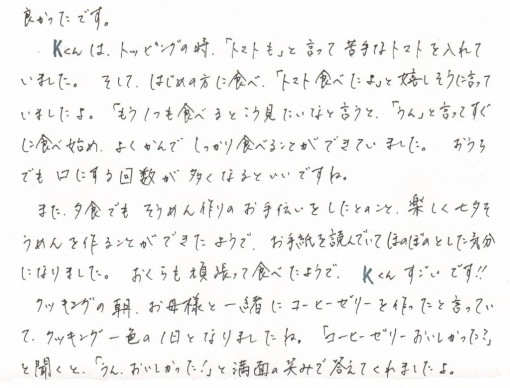 良かったです。
Kくんは、トッピングの時、「トマトも」と言って苦手なトマトを入れて
いました。そして、はじめの方に食べ、「トマト食べたよ」と嬉しそうに言って
いましたよ。「もう1つも食べるところ見たいな」と言うと、「うん」と言ってすぐ
に食べ始め、よくかんでしっかり食べることができていました。おうち
でも口にする回数が多くなるといいですね。
また、夕食でもそうめん作りのお手伝いをしたとのこと、楽しく七夕そ
うめんを作ることができたようで、お手紙を読んでいてほのぼのとした気分
になりました。おくらも頑張って食べたようで、Kくんすごいです!!
クッキングの朝、お母様と一緒にコーヒーゼリーを作ったと言ってい
て、クッキング一色の1日となりましたね。「コーヒーゼリーおいしかった?」
と聞くと、「うん、おいしかった!」と満面の笑みで答えてくれましたよ。